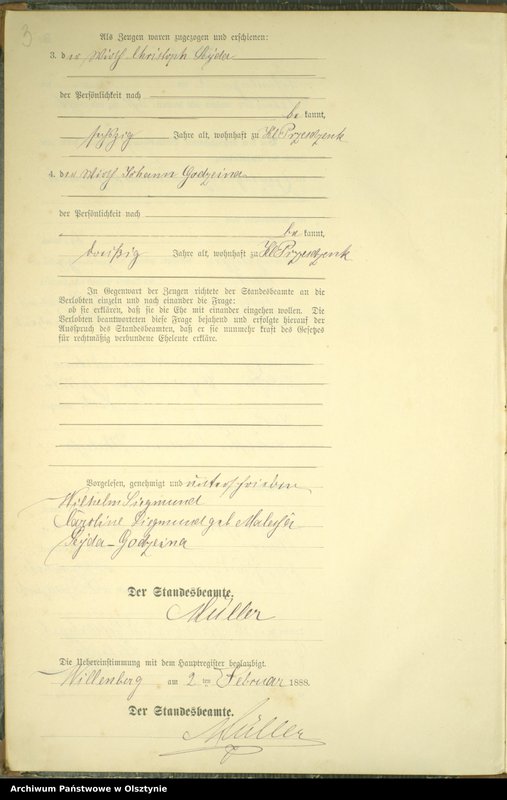 3
Als Zeugen waren zugezogen und erschienen:
3. der Wirth Christoph Seyda
der Persönlichkeit nach
be kannt,
sechzig Jahre alt, wohnhaft zu Kl Przesdzenk
4. der Wirth Johann Godzeina
der Persönlichkeit nach
be kannt,
dreißig Jahre alt, wohnhaft zu Kl Przesdzenk
In Gegenwart der Zeugen richtete der Standesbeamte an die
Verlobten einzeln und nach einander die Frage:
ob sie erklären, daß sie die Ehe mit einander eingehen wollen. Die
Verlobten beantworteten diese Frage bejahend und erfolgte hierauf der
Ausspruch des Standesbeamten, daß er sie nunmehr kraft des Gesetzes
für rechtmäßig verbundene Eheleute erkläre.
Vorgelesen, genehmigt und unterschrieben
Wilhelm Siegmund
Caroline Siegmund geb
Seyda – Godzeina
Der Standesbeamte.
Müller
Die Uebereinstimmung mit dem Hauptregister beglaubigt.
Willenberg am 2 ten Februar 1888.
Der Standesbeamte.
Müller
Archiwum Państwowe w Olsztynie